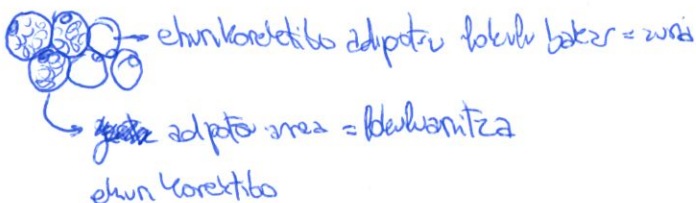 ehun konektibo adipotsu lokulu bakar = zuria
adipotsu arrea = lokulu anitza
ehun konektibo